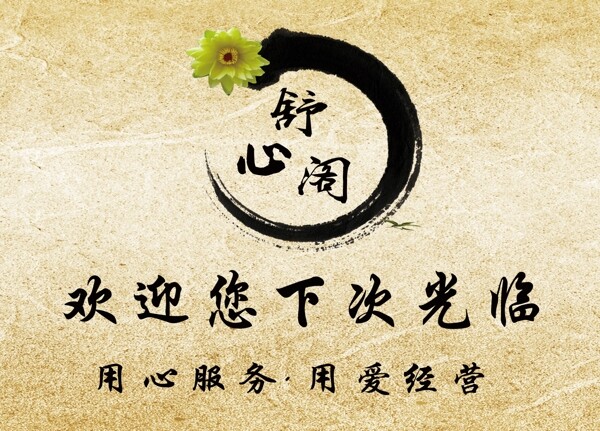 舒心阁
欢迎您下次光临
用心服务·用爱经营